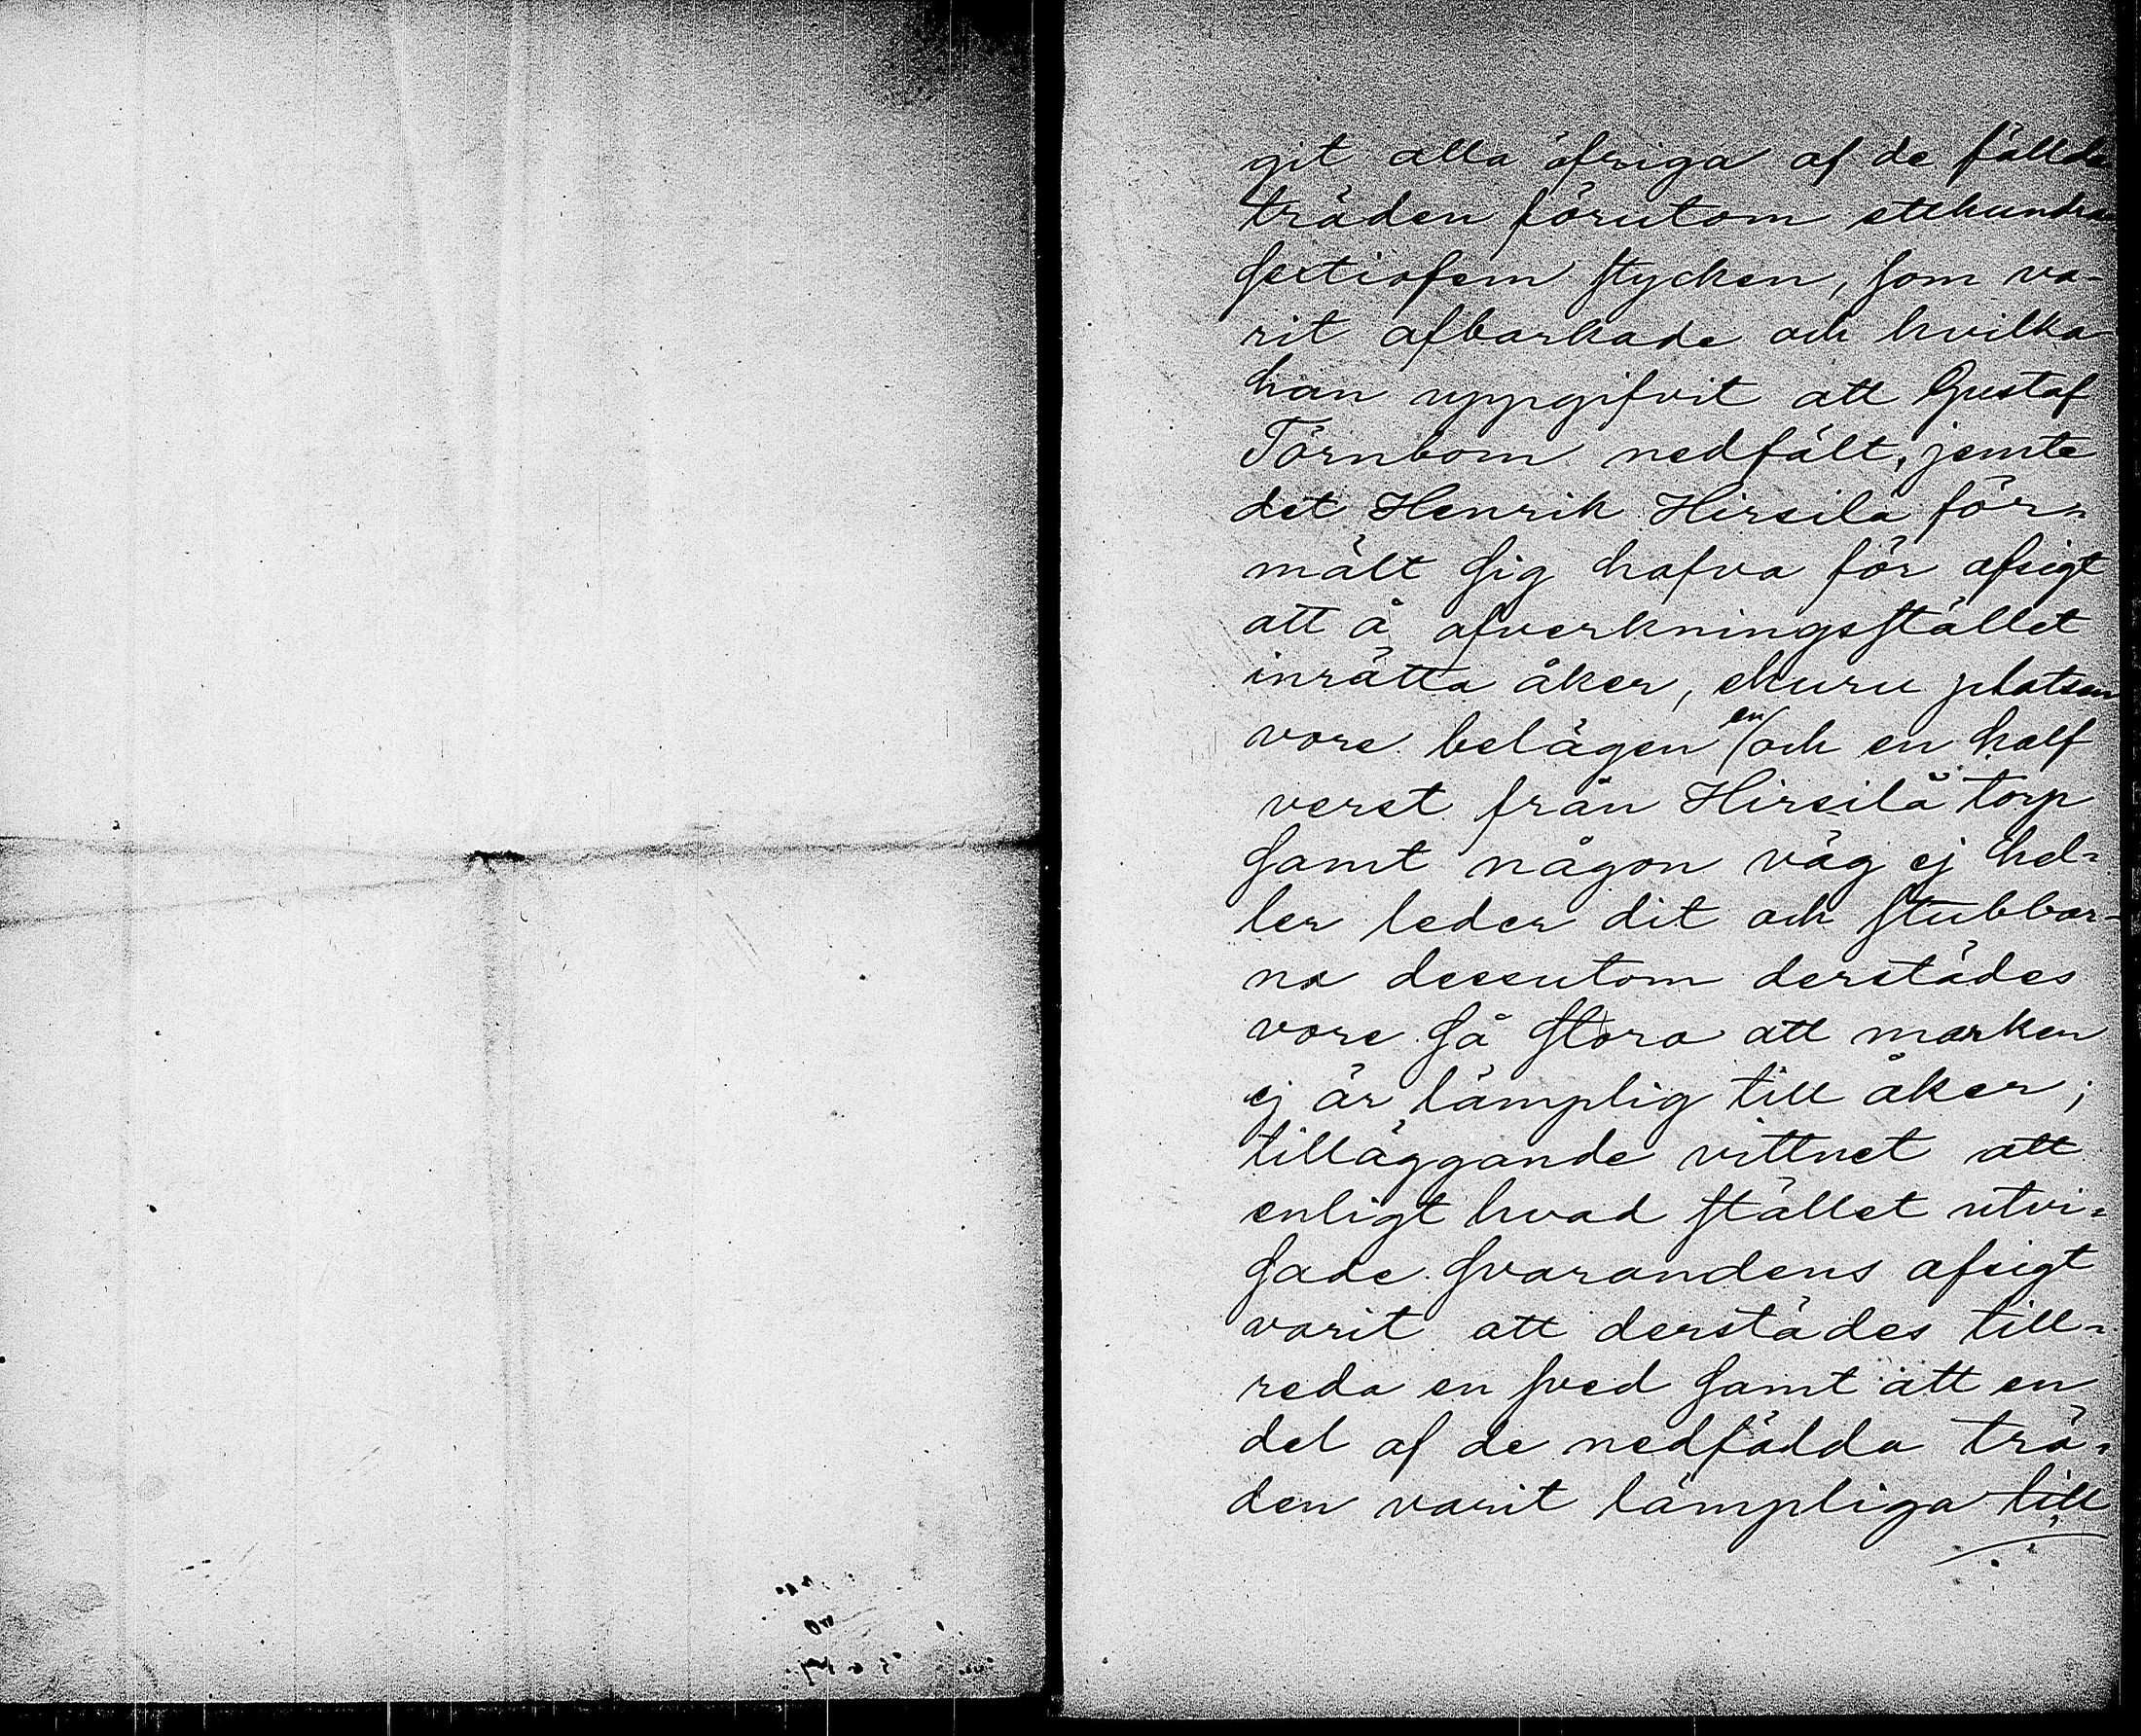 git alla öfriga af de fällda
träden förutom etthundra
sextiofem stycken, som va-
rit afbarkade och hvilka
han uppgifvit att Gustaf
Törnbom nedfält, jemte
det Henrik Hirsilä för-
mält sig hafva för afsigt
att å afverkningsstället
inrätta åker, ehuru platsen
vore belägen en och en half
verst från Hirsilä torp
samt någon väg ej hel-
ler leder dit och stubbar-
na dessutom derstädes
vore så stora att marken
ej är lämplig till åker;
tilläggande vittnet att
enligt hvad stället utvi-
sade svarandens afsigt
varit att derstädes till-
reda en sved samt att en
del af de nedfälda trä-
den varit lämpliga till